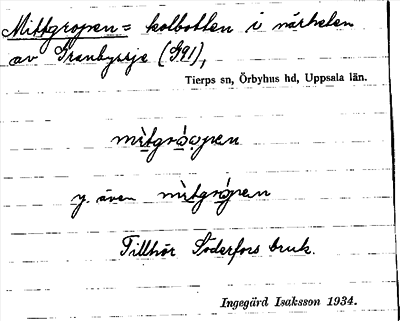 Mittgropen = kolbotten i närheten
av Granbyssje (G91),
Tierps sn, Örbyhus hd, Uppsala län.
mìtgrópen
y. även mìtgrópen
Tillhör Söderfors bruk.
Ingegärd Isaksson 1934.